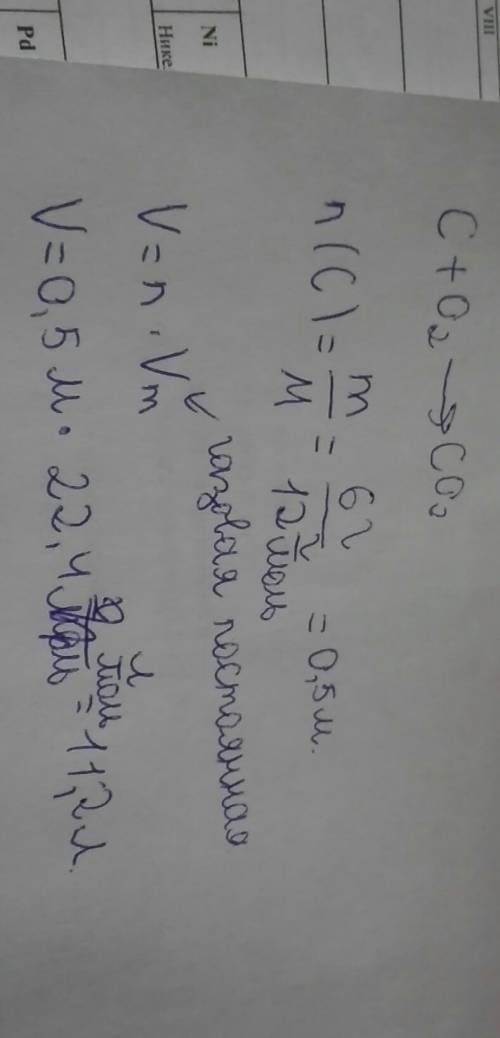 VIII
Ni
Нике
Pd
C + O₂ → CO₂
n(C) = m/M = 6г/12 г/моль = 0,5 м.
V = n · Vm
газовая постоянная
V = 0,5 м · 22,4 л/моль = 11,2 л.